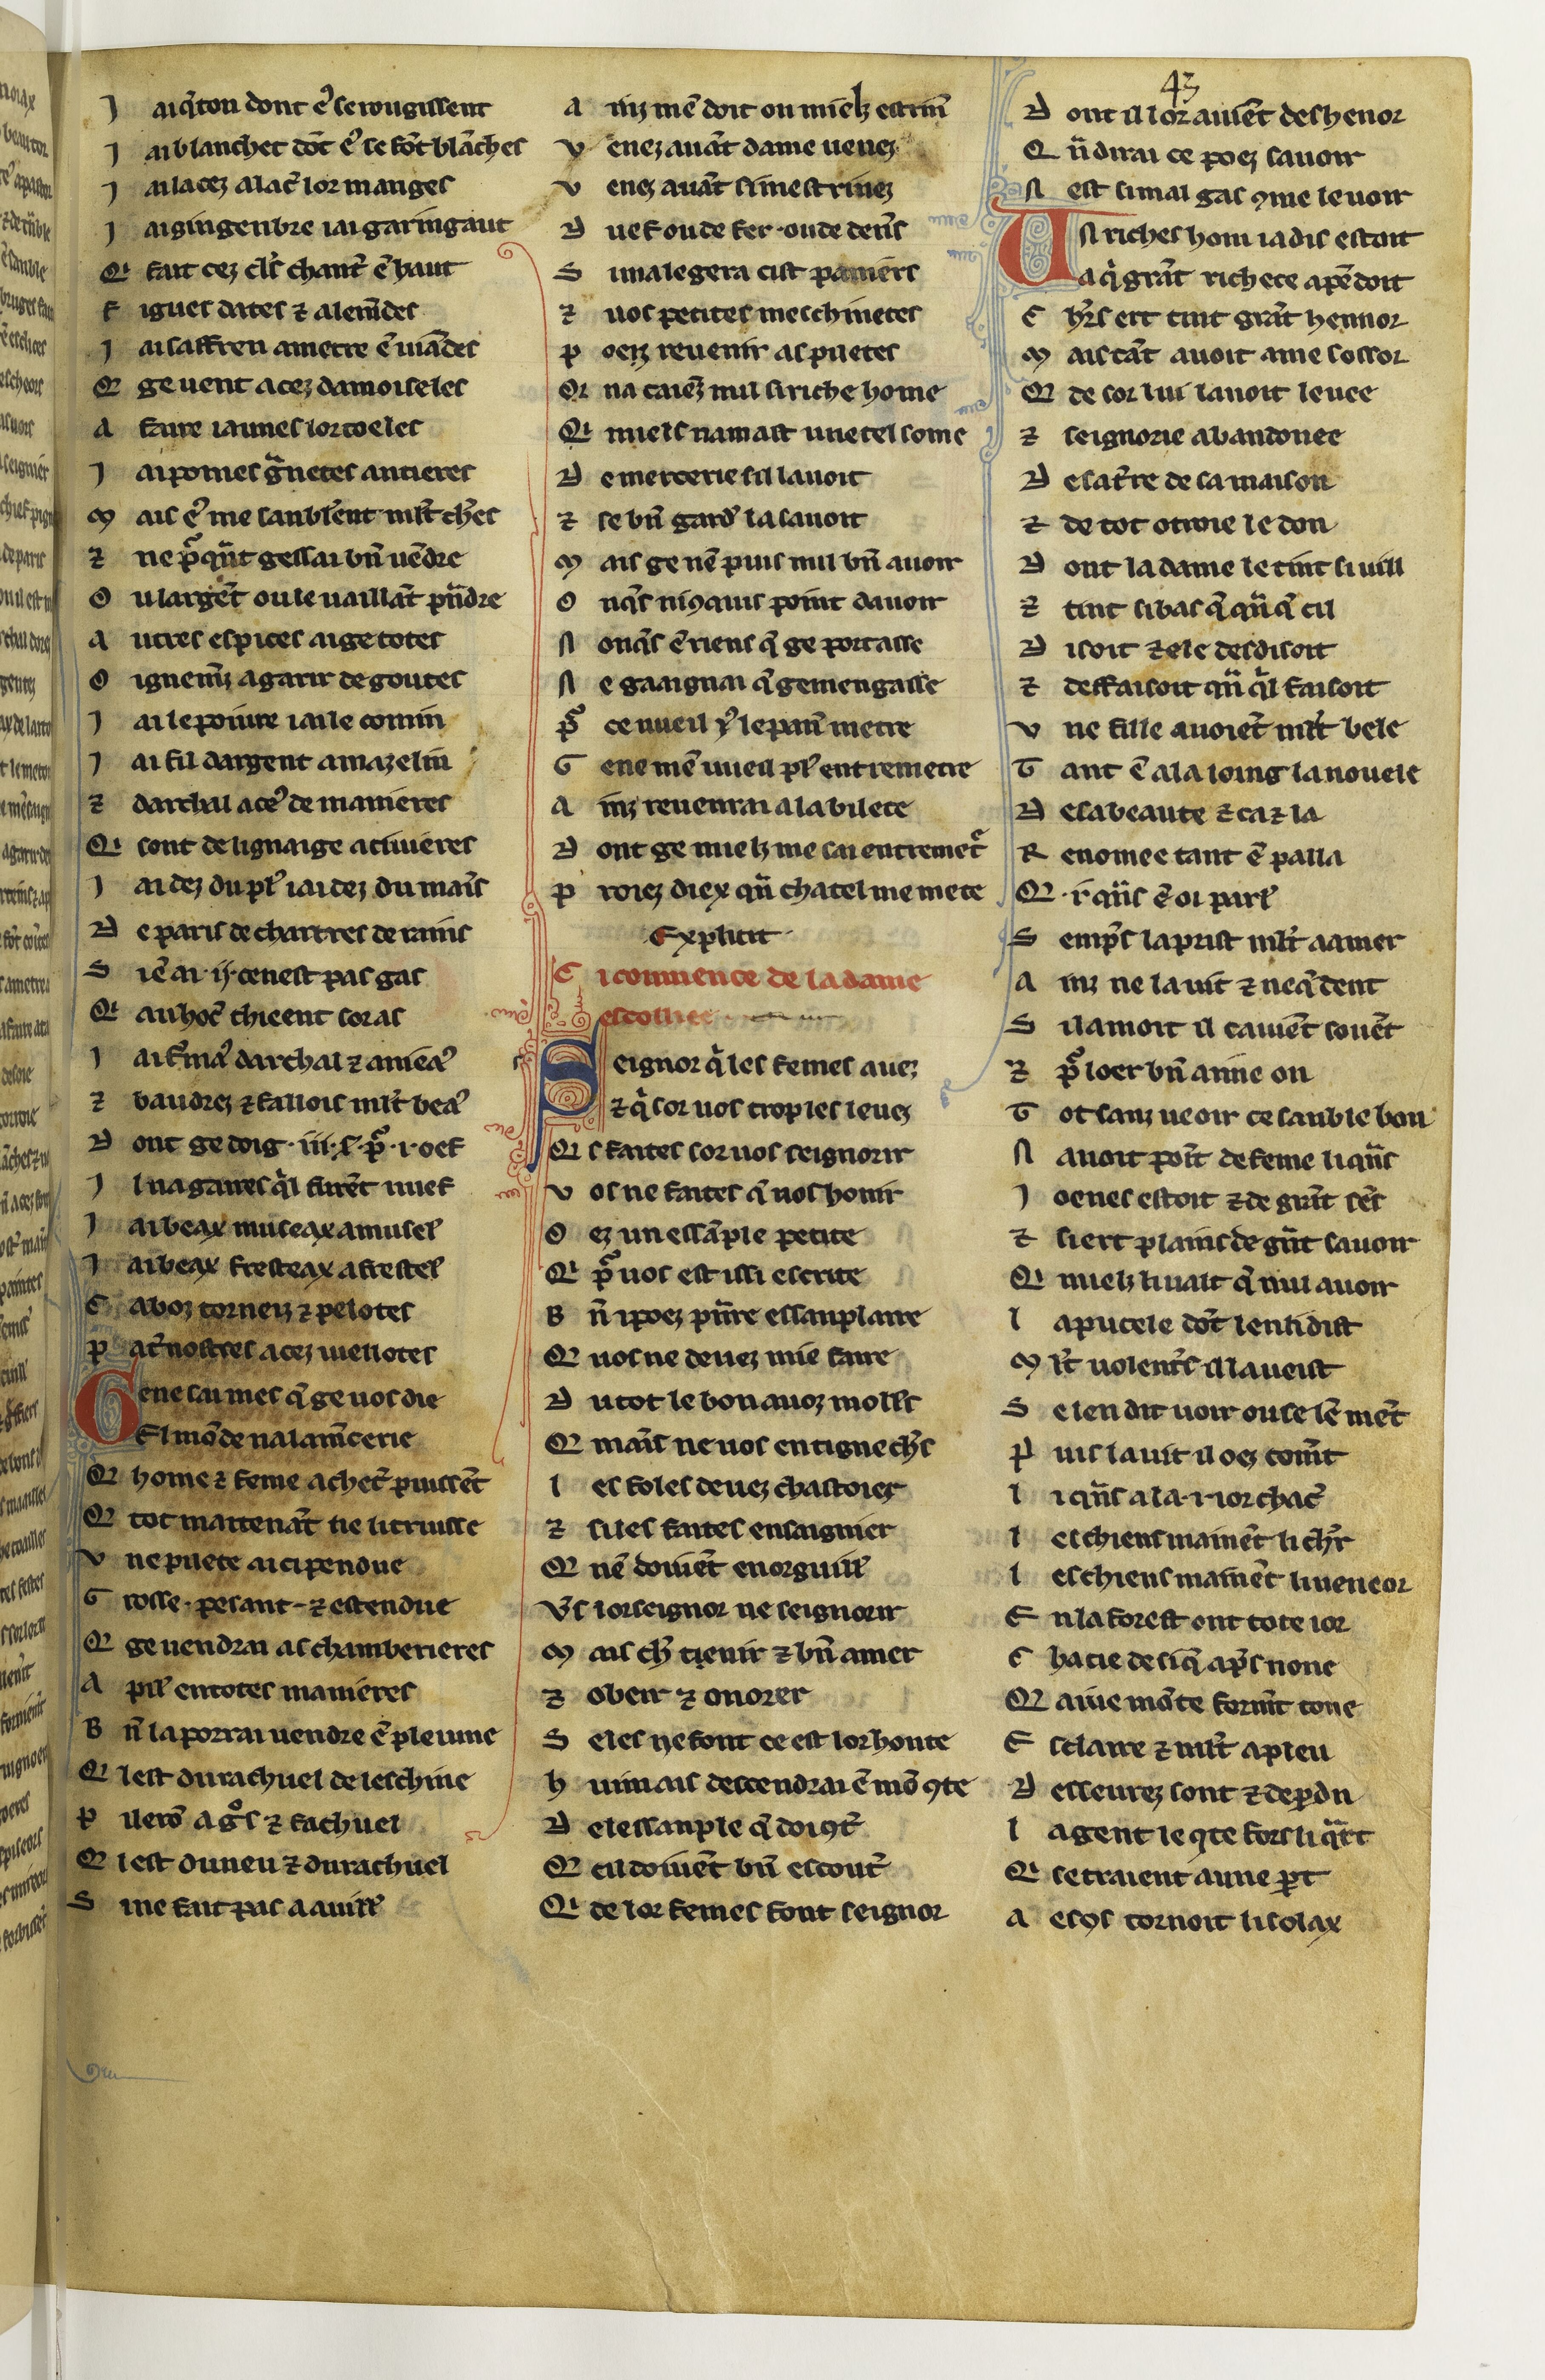 43
J ai q̃ton dont eˀ se rougissent
J ai blanchet dõt eˀ se fõt blãches
J ai lacez a lac̃ lor manges
J ai gingenbre iai garingaut
Qi fait cez cl̃s chant̃ ẽ haut
F igues dates ⁊ alemãdes
J ai saffren a metre ẽ uiãdes
Q ge uent a cez damoiseles
A faire iaunes lor toeles
J ai pomes g̃netes antieres
M ais eˀ me sanblẽent ml̃t ch̃es
⁊ ne p̃q̃nt ges sai bñ uẽdre
O u largẽt ou le uaillãt p̃ndre
A utres espices ai ge totes
O ignem̃z a garir de goutes
J ai le poiure iai le comin
J ai fil dargent a mazelin
⁊ darchal a ceˀ de manieres
Qi sont de lignaige a ciuieres
J ai dez du pl̃ iai dez du mais̃
D e paris de chartres de rains
S i ẽ ai ·ij· ce nest pas gas
Qi au hoc̃ chieent sor as
J ai f̃maˀ darchal ⁊ aneaˀ
⁊ baudrez ⁊ fallois ml̃t beaˀ
D ont ge doig ·iii· s̃ p̃ ·i· oef
J l na gaires q̃l furẽt nuef
J ai beax museax a musel̃
J ai beax fresteax a frestel̃
C aboz torneiz ⁊ pelotes
P at̃nostres a cez uiellotes
G e ne sai mes q̃ ge uos die
El mõde na lam̃cerie
Q home ⁊ feme achet̃ puissẽt
Q tot maintenãt ne li truisse
V ne puete ai ci pendue
G rosse · pesant · ⁊ estendue
Q ge uendrai as chamberieres
A pil̃ en totes manieres
B ñ la porrai uendre ẽ pleuine
Q lest du rachuel de leschine
P uerõ a g̃s ⁊ fachuel
Q lest du neu ⁊ du rachuel
S i ne fait pas a auill̃
A inz mẽ doit on mielz estrin̄
V enez auãt dame uenez
V enez auãt si mestrinez
D uef ou de fer · ou de deñs
S i malegera cist paniers
⁊ uos petites meschinetes
P oeiz reuenir as puetes
Q na caiẽz nul si riche home
Qi miels namast une tel some
D e mercerie sil lauoit
⁊ se bñ gard̃ la sauoit
M ais ge nẽ puis nul bñ auoir
O nq̃s ni ꝯquis point dauoir
N onq̃s ẽ riens q̃ ge portasse
N e gaaignai q̃ ge mengasse
P̃ ce uueil gˀ le pan̄ metre
G e ne mẽ uueil pl̃ entremetre
A inz reuenrai a la bilete
D ont ge mielz me sai entremet̃
P roiez diex qñ chatel me mete
Explicit
C i conmence de la dame
escolliee
S eignor q̃ les femes auez
⁊ q̃ sor uos trop les leuez
Qi s faites sor uos seignorir
V os ne faites q̃ uos honir
O ez un essãple petite
Qi p̃ uos est issi escrite
B ñ i poez p̃nre essanplaire
Q uos ne deuez mie faire
D u tot le bon auoz moll̃s
Q mais̃ ne uos en tigne ch̃s
L es foles deuez chastoier
⁊ si les faites ensaignier
Q nẽ doiuẽt enorguill̃
Vs̃ lor seignor ne seignorir
M ais ch̃ tenir ⁊ bñ amer
⁊ obeir ⁊ onorer
S eles ne font ce est lor honte
H uimais descendrai ẽ mõ ꝯte
D e lessanple q̃ doi ꝯt̃
Q cil doiuẽt bñ escout̃
Qi de lor femes font seignor
D ont il lor auiẽt deshenor
Q ñ dirai ce poez sauoir
N est si mal gas ꝯme le uoir
U n riches hom iadis estoit
A q̃ grãt richece apẽdoit
C h̃rs ert tint grãt hennor
M ais tãt auoit ame sossor
Q de sor lui lauoit leuee
⁊ seignorie abandonee
D e sa t̃re de sa maison
⁊ de tot otroie le don
D ont la dame le tint si uill
⁊ tint si bas q̃ qñ q̃ cil
D isoit ⁊ ele desdisoit
⁊ deffaisoit qñ q̃l faisoit
V ne fille auoiẽt ml̃t bele
T ant ẽ ala loing la nouele
D e sa beaute ⁊ ca ⁊ la
R enomee tant ẽ palla
Q ·i· q̃ns ẽ oi parl̃
S emp̃s la prist ml̃t a amer
A inz ne la uit ⁊ neq̃dent
S il amoit il cauiẽt souẽt
⁊ p̃ loer bñ aime on
T ot sanz ueoir ce sanble bon
N auoit poĩt de feme li q̃ns
J oenes estoit ⁊ de grãt sẽs
⁊ si ert plains de g̃nt sauoir
Qi mielz li ualt q̃ nul auoir
L a pucele dõt len li dist
M l̃t uolent̃s il la ueist
S e len dit uoir ou se lẽ mẽt
P̃ uis la uit il oez com̃t
L i q̃ns ala ·i· ior chac̃
L es chiens mainẽt li ch̃r
L es chiens mainẽt li ueneor
E n la forest ont tote ior
C hacie desi q̃ ap̃s none
Q aiue mõte form̃t tone
E sclaire ⁊ ml̃t a pleu
D esseurez sont ⁊ dep̃dn
L a gent le ꝯte fors li q̃rt
Qi se traient a une p̃t
A esꝯs tornoit li solax